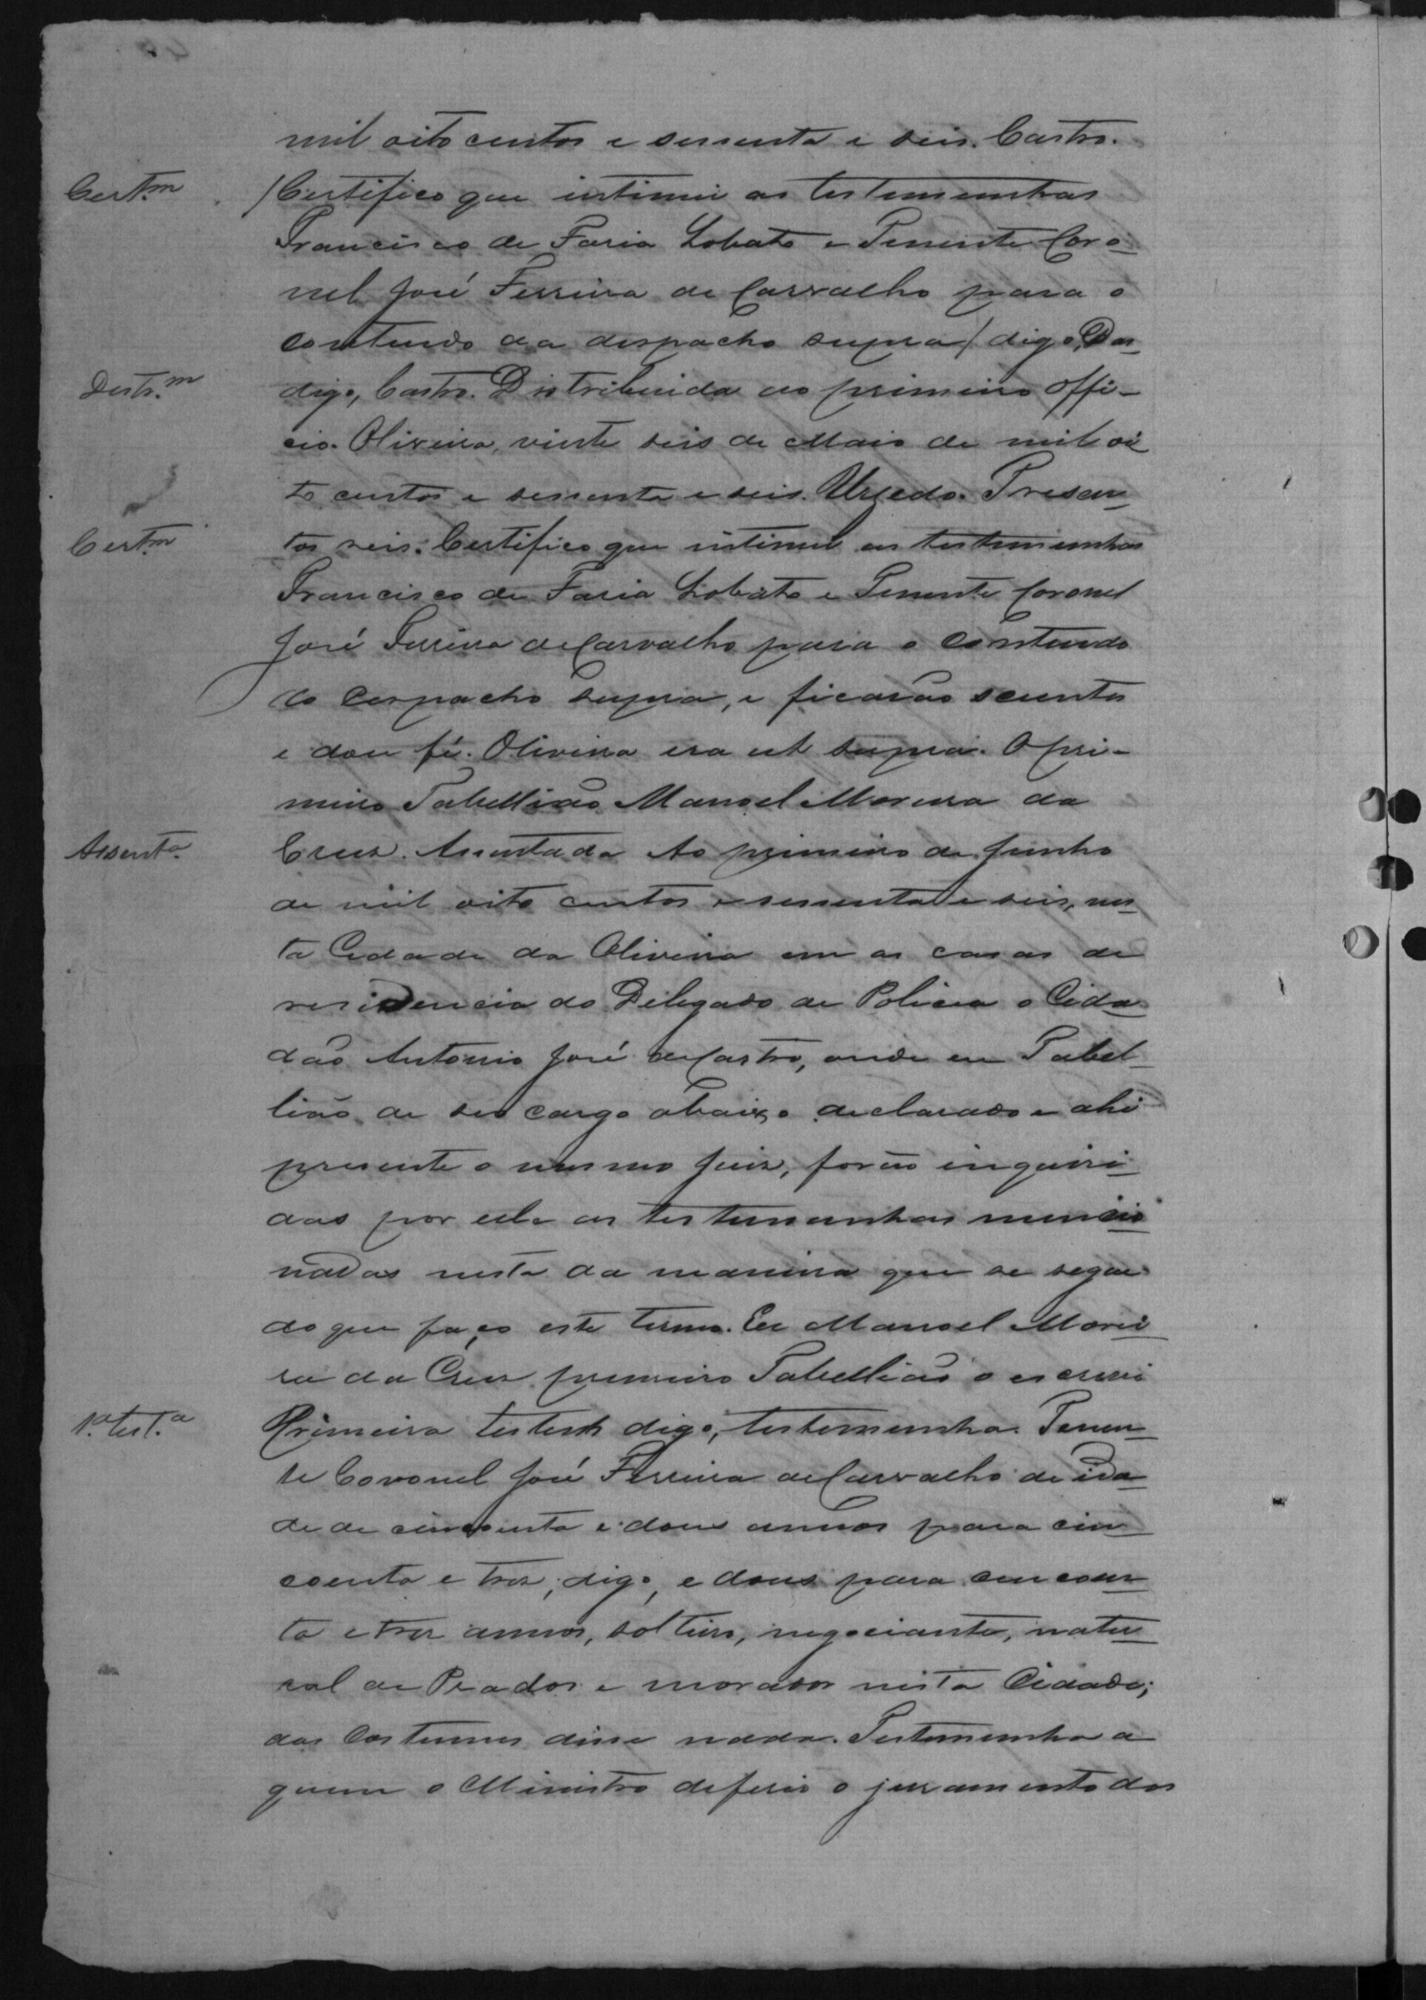 mil oito centos e sessenta e seis. Castro.
Cert.m
/Certifico que intimei as testemunhas
Francisco de Faria Lobato e Tenente Coro-
nel José Ferreira de Carvalho para o
contheudo da despacho supra/ digo, Das
Destr.m
digo, Castro. Distribuida ao primeiro offi-
cio. Oliveira, vinte seis de Maio de mil oi-
to centos e sessenta e seis. Azedo. Tresen-
Cert.m
tos reis. Certifico que intimei as testemunhas
Francisco de Faria Lobato e Tenente Coronel
José Ferreira de Carvalho para o contheudo
do despacho supra, e ficarão scientes
e dou fé. Oliveira era ut supra. O pri-
meiro Tabellião Manoel Moreira da
Assent.a
Cruz. Assentada Ao primeiro de Junho
de mil oito centos e sessenta e seis, nes-
ta Cidade da Oliveira em as casas de
residencia do Delegado de Policia o Cida-
dão Antonio José de Castro, onde eu Tabel-
lião de seo cargo abaixo declarado e ahi
presente o mesmo Juiz, forão inqueri-
das por elle as testemunhas mencio-
nadas nesta da maneira que se segue
do que faço este termo. Eu Manoel Morei-
ra da Cruz primeiro Tabellião o escrevi
1.a test.a
Primeira testesh digo, testemunha. Tenen-
te Coronel José Ferreira de Carvalho de ida-
de de cincoenta e dous annos para cin-
coenta e tres, digo, e dous para cincoen-
ta e tres annos, solteiro, negociante, natu-
ral de Prados e morador nesta Cidade;
dos costumes disse nada. Testemunha a
quem o Ministro deferio o juramento dos